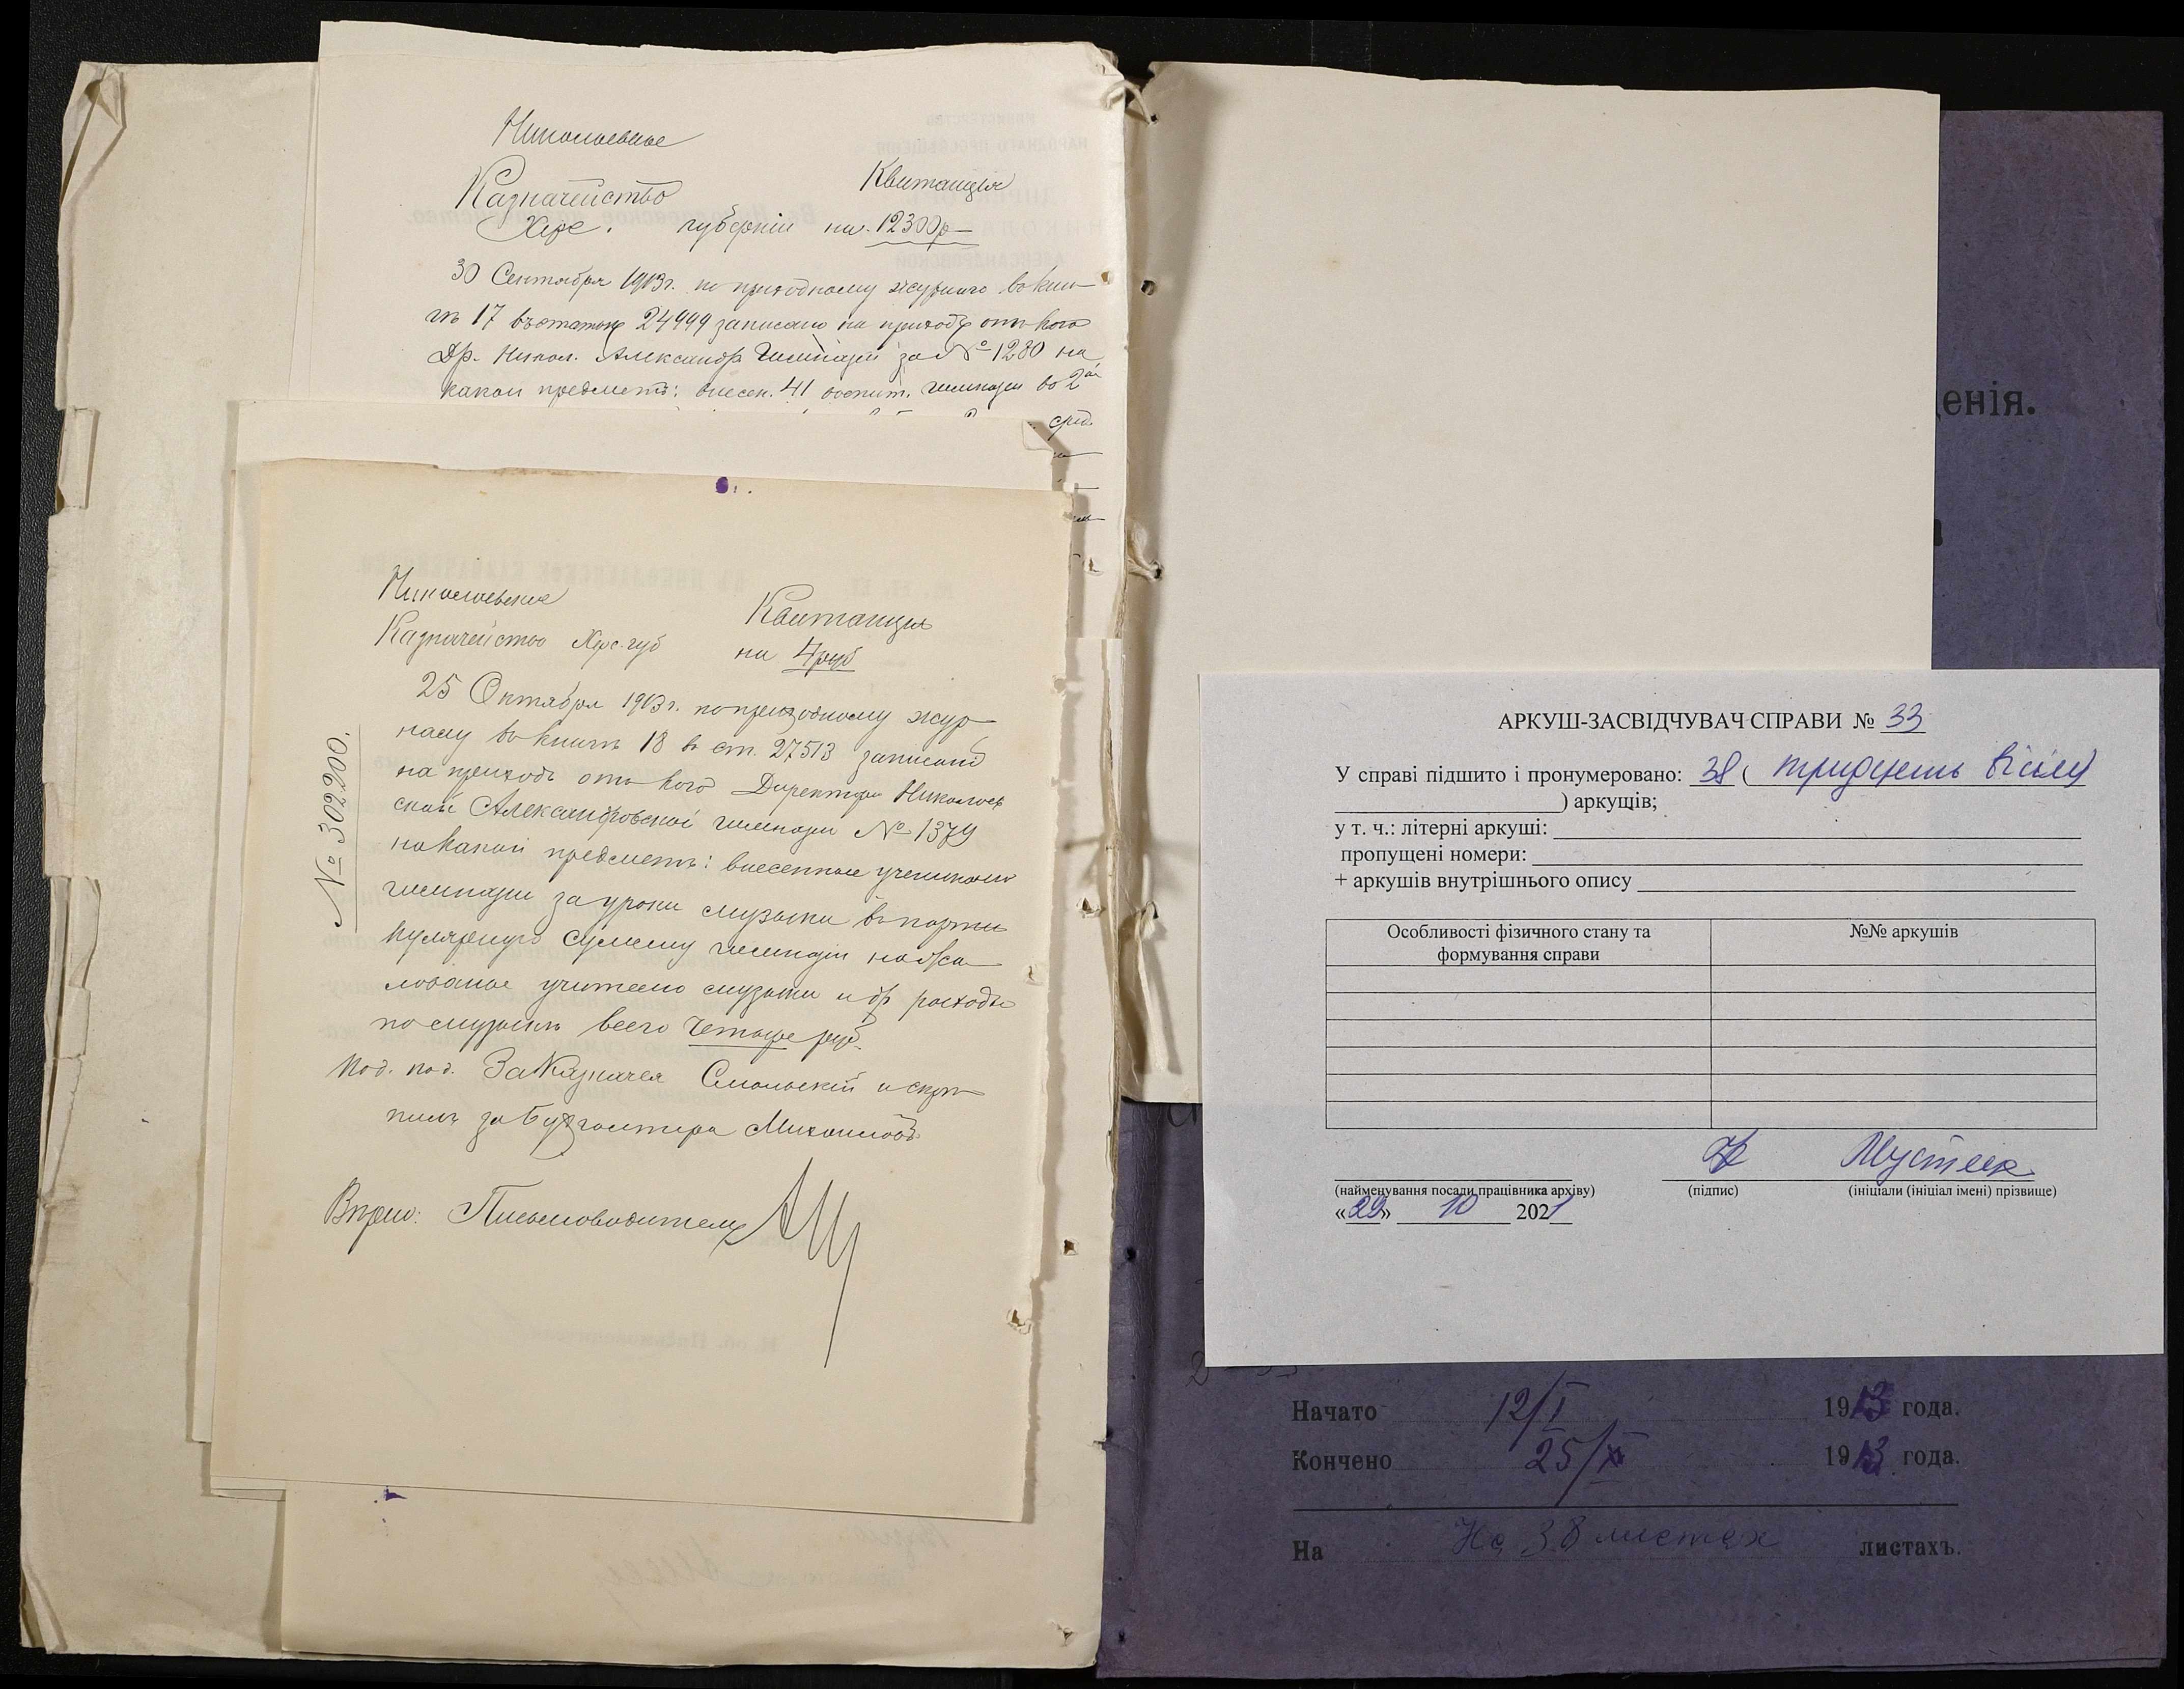 Николаевское
Казначейство
Квитанція
Херс. губерніи на 12300р
30 Сентября 1913г. по приходному журналу в книг
гѣ 17 въ статью 24999 записано на приходъ отъ кого
Др. Никол. Александр Гимназіи за № 1280 на
какой предметъ: внесен. 41 воспит. гимназіи во 2ой
сред.
Николаевское
Квитанция
Казначейство Херс. губ
на 4 руб
25 Октября 1913г. по приходному жур
налу въ книгѣ 18 в ст. 27513 записано
на приходъ отъ кого Директора Николаев
ской Александровской гимназіи № 1379
на какой предметъ: внесенные учениками
гимназіи за уроки музыки въ парти
кулярную сумму гимназіи на жа
лованье учителю музыки и др расходы
по музыкѣ всего четыре руб.
Под. под. За Казначея Смольскій и скрѣ
пилъ за Бухгалтера Михайловъ
Вѣрно: Письмоводитель
№ 302200.
енія.
АРКУШ-ЗАСВІДЧУВАЧ СПРАВИ № 33
У справі підшито і пронумеровано: 38 ( тридцять вісім
) аркущів;
у т. ч.: літерні аркуші:
пропущені номери:
+ аркушів внутрішнього опису
Особливості фізичного стану та
формування справи
№№ аркушів
Мустеик
(найменування посади працівника архіву) (підпис) (ініціали (ініціал імені) прізвище)
«29» 10 2021
Начато 12/I 1913 года.
Кончено 25/X 1913 года.
На На 38 листах листахъ.